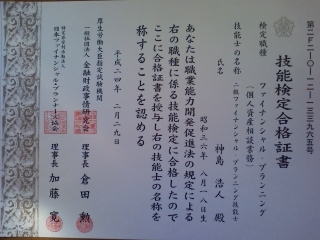 第二F二一〇一一二一一三三九六五号
技能検定合格証書
検定職種
ファイナンシャル・プランニング
(個人資産相談業務)
技能士の名称
二級ファイナンシャル・プランニング技能士
氏名
神島 浩人 殿
昭和三六年 八月一八日生
あなたは職業能力開発促進法の規定による
右の職種に係る技能検定に合格したので
ここに合格証書を授与し右の技能士の名称を
称することを認める
平成二四年 二月二九日
厚生労働大臣指定試験機関
一般社団法人 金融財政事情研究会
理事長 倉田 勲
特定非営利活動法人
日本ファイナンシャル・プランナーズ協会
理事長 加藤 寛